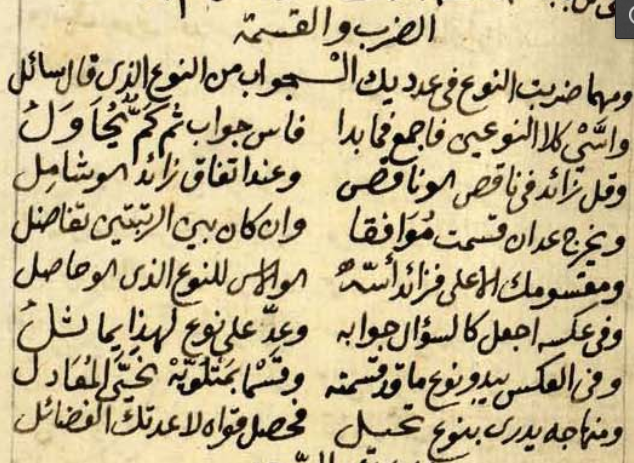 الضرب والقسمة
ومهما ضربت النوع فى عدد يك الـجواب من النوع الذى قال سائل
واسّى كلا النوعين فاجمع فما بدا فاس جواب ثم كم يُحَاوَلُ
وقل زائد فى ناقص الوناقص وعند اتفاق زائد الوشامل
ويخرج عد ان قسمت مُوَافقا وان كان بين الرتبتين تفاضل
ومقسومك الاعلى فزائد أسّه الوالاس للنوع الذى الوحاصل
وفى عكسه اجعل كالسؤال جوابه وعدّ على نوع لهذا يماثلُ
وفى العكس يبدو نوع ما قد قسمته وقسما بمتلوّيه المعادل
ومنهاجه يدرى بنوع تحيل فحصل قواه لا عدتك الفضائل